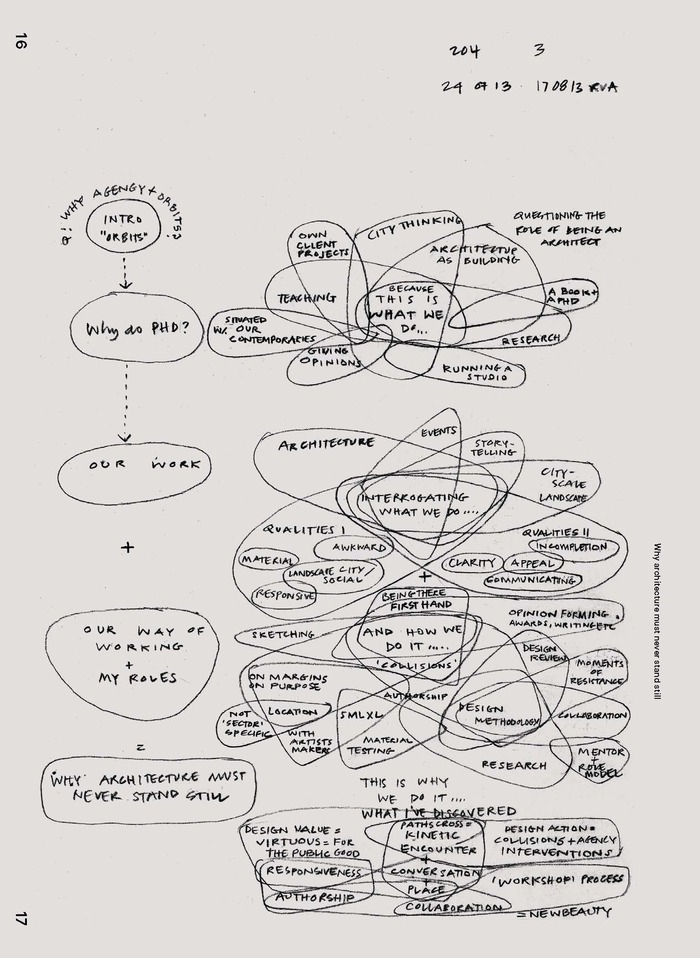 16
204 3
24 OF 13 170813 RVA
Q! WHY AGENCY + ORBITS?
INTRO
"ORBITS"
Why do PHD?
OUR WORK
+
OUR WAY OF
WORKING
+
MY ROLES
=
'WHY ARCHITECTURE MUST
NEVER STAND STILL
OWN
CLIENT
PROJECTS
CITY THINKING
QUESTIONING THE
ROLE OF BEING AN
ARCHITECT
ARCHITECTUR
AS BUILDING
TEACHING
BECAUSE
THIS IS
WHAT WE
DO...
A BOOK +
A PHD
SITUATED
W/. OUR
CONTEMPORARIES
GIVING
OPINIONS
RESEARCH
RUNNING A
STUDIO
ARCHITECTURE
EVENTS
STORY-
TELLING
CITY-
SCALE
LANDSCAPE
INTERROGATING
WHAT WE DO....
QUALITIES I
AWKWARD
MATERIAL
LANDSCAPE CITY/
SOCIAL
RESPONSIVE
QUALITIES II
INCOMPLETION
CLARITY
APPEAL
COMMUNICATING
+
BEING THERE
FIRST HAND
SKETCHING
AND HOW WE
DO IT .....
'COLLISIONS'
OPINION FORMING.
AWARDS, WRITING ETC
DESIGN
REVIEW
MOMENTS
OF
RESISTANCE
ON MARGINS
ON PURPOSE
AUTHORSHIP
NOT
'SECTOR'
SPECIFIC
LOCATION
SMLXL
WITH
ARTISTS
MAKERS
MATERIAL
TESTING
DESIGN
METHODOLOGY
COLLABORATION
RESEARCH
MENTOR
+
ROLE
MODEL
THIS IS WHY
WE DO IT ....
WHAT I'VE DISCOVERED
DESIGN VALUE =
VIRTUOUS = FOR
THE PUBLIC GOOD
PATHS CROSS =
KINETIC
ENCOUNTER
+
CONVERSATION
+
PLACE
DESIGN ACTION =
COLLISIONS + AGENCY
INTERVENTIONS
RESPONSIVENESS
'WORKSHOP' PROCESS
AUTHORSHIP
COLLABORATION
= NEW BEAUTY
Why architecture must never stand still
17